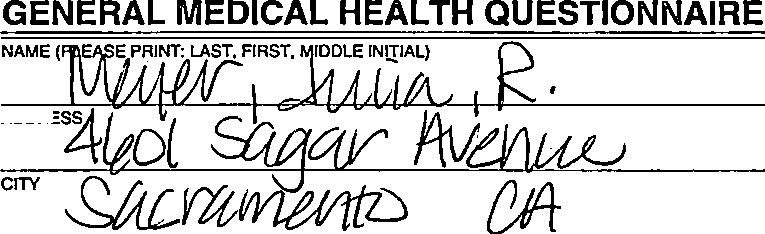 GENERAL MEDICAL HEALTH QUESTIONNAIRE
NAME (PLEASE PRINT: LAST, FIRST, MIDDLE INITIAL)
Meyer, Julia, R.
ESS
4601 Sagar Avenue
CITY
Sacramento CA